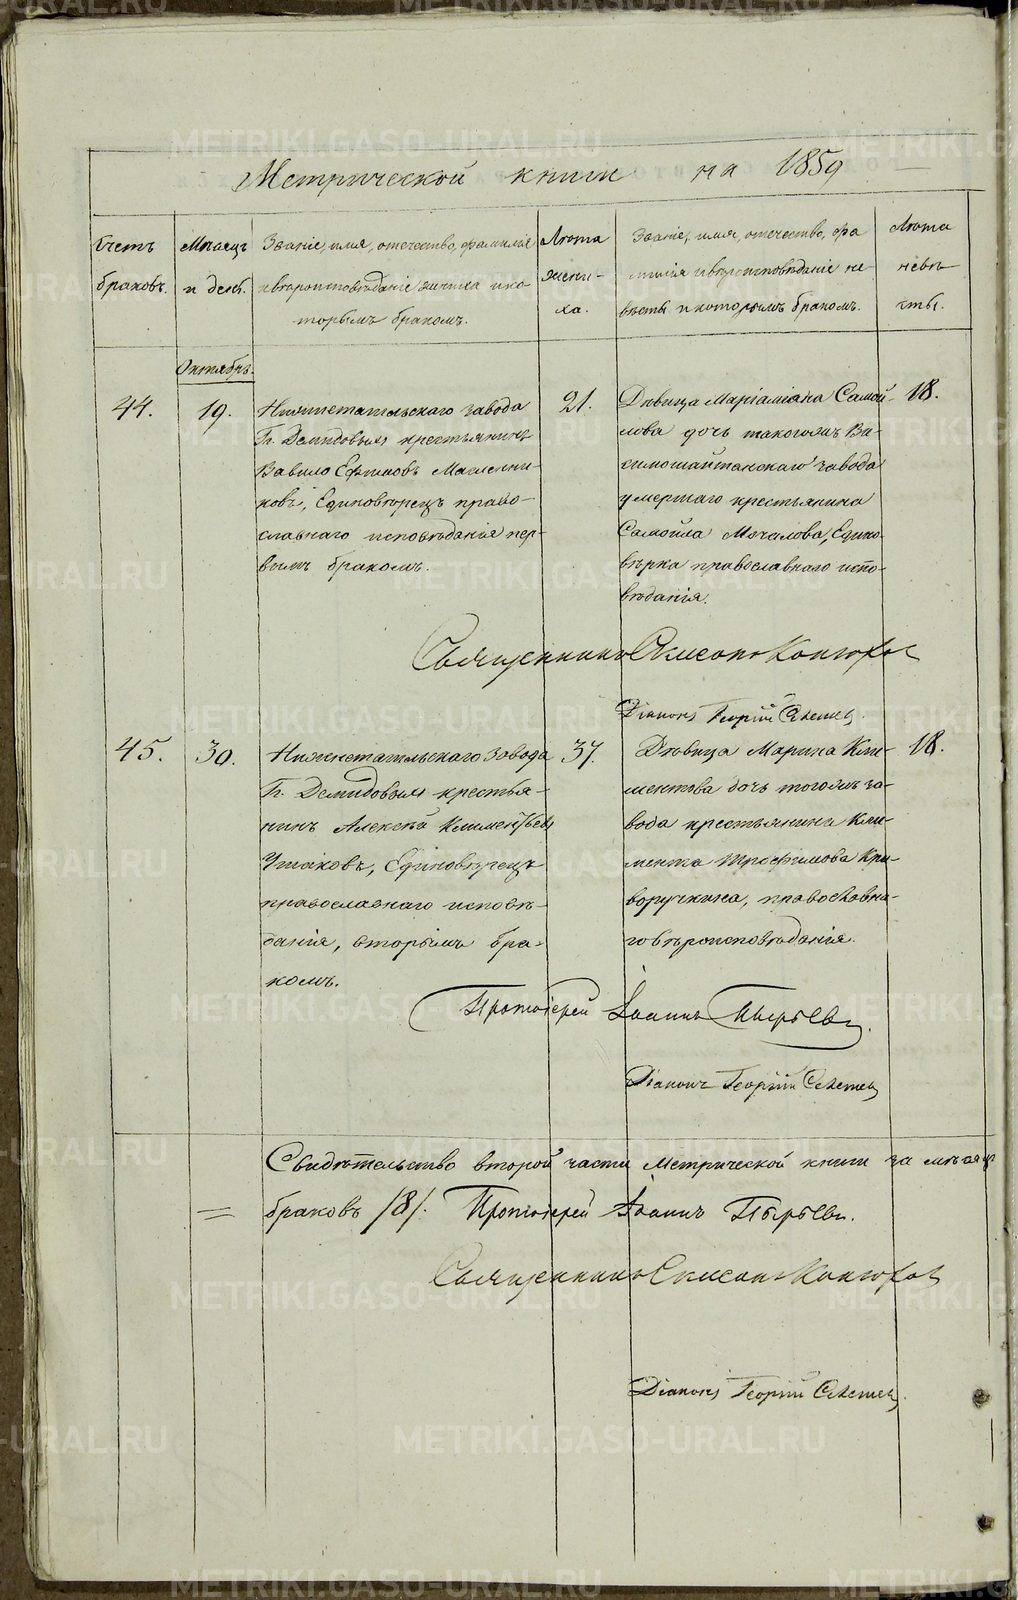 Метрической книги на 1859
Счетъ
браковъ.
Мѣсяцъ
и день.
Званіе, имя, отечество, фамилія
и вѣроисповѣданіе жениха и ко-
торымъ бракомъ.
Лѣта
жени-
ха.
Званіе, имя, отечество, фа
милія и вѣроисповѣданіе не-
вѣсты и которымъ бракомъ.
Лѣта
невѣ
сты.
Октябрь.
44.
19.
Нижнетагильскаго завода
Гг. Демидовыхъ крестьянинъ
Вавило Ефимовъ Масленни-
ковъ, Единовѣрецъ право-
славнаго исповѣданія пер-
вымъ бракомъ.
21.
Дѣвица Маріаміана Самой-
лова дочь такогожъ Ви-
симошайтанскаго завода
умершаго крестьянина
Самойла Мочалова, Едино-
вѣрка православнаго испо-
вѣданія.
18.
Священникъ
Діаконъ Георгій
45.
30.
Нижнетагильскаго завода
Гг. Демидовыхъ крестья-
нинъ Алексѣй Климентьевъ
Ушаковъ, Единовѣрецъ
православнаго исповѣ-
данія, вторымъ бра-
комъ.
37.
Дѣвица Марина Кли-
ментова дочь тогожъ за-
вода крестьянина Кли-
мента Трофимова Кри-
воручкина, православна-
го вѣроисповѣданія.
18.
Протоіерей Іоаннъ Пырьевъ.
Діаконъ Георгій
Свидѣтельство второй части Метрической книги за мѣсяцъ
браковъ /8/. Протоіерей Іоаннъ Пырьевъ.
Священникъ
Діаконъ Георгій
METRIKI.GASO-URAL.RU